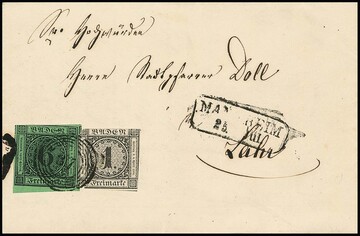 Sr Hochwürden
Herrn Stadtpfarrer Doll
MANNHEIM
25. JUL
Lahr
BADEN
Freimarke
BADEN
1
Freimarke